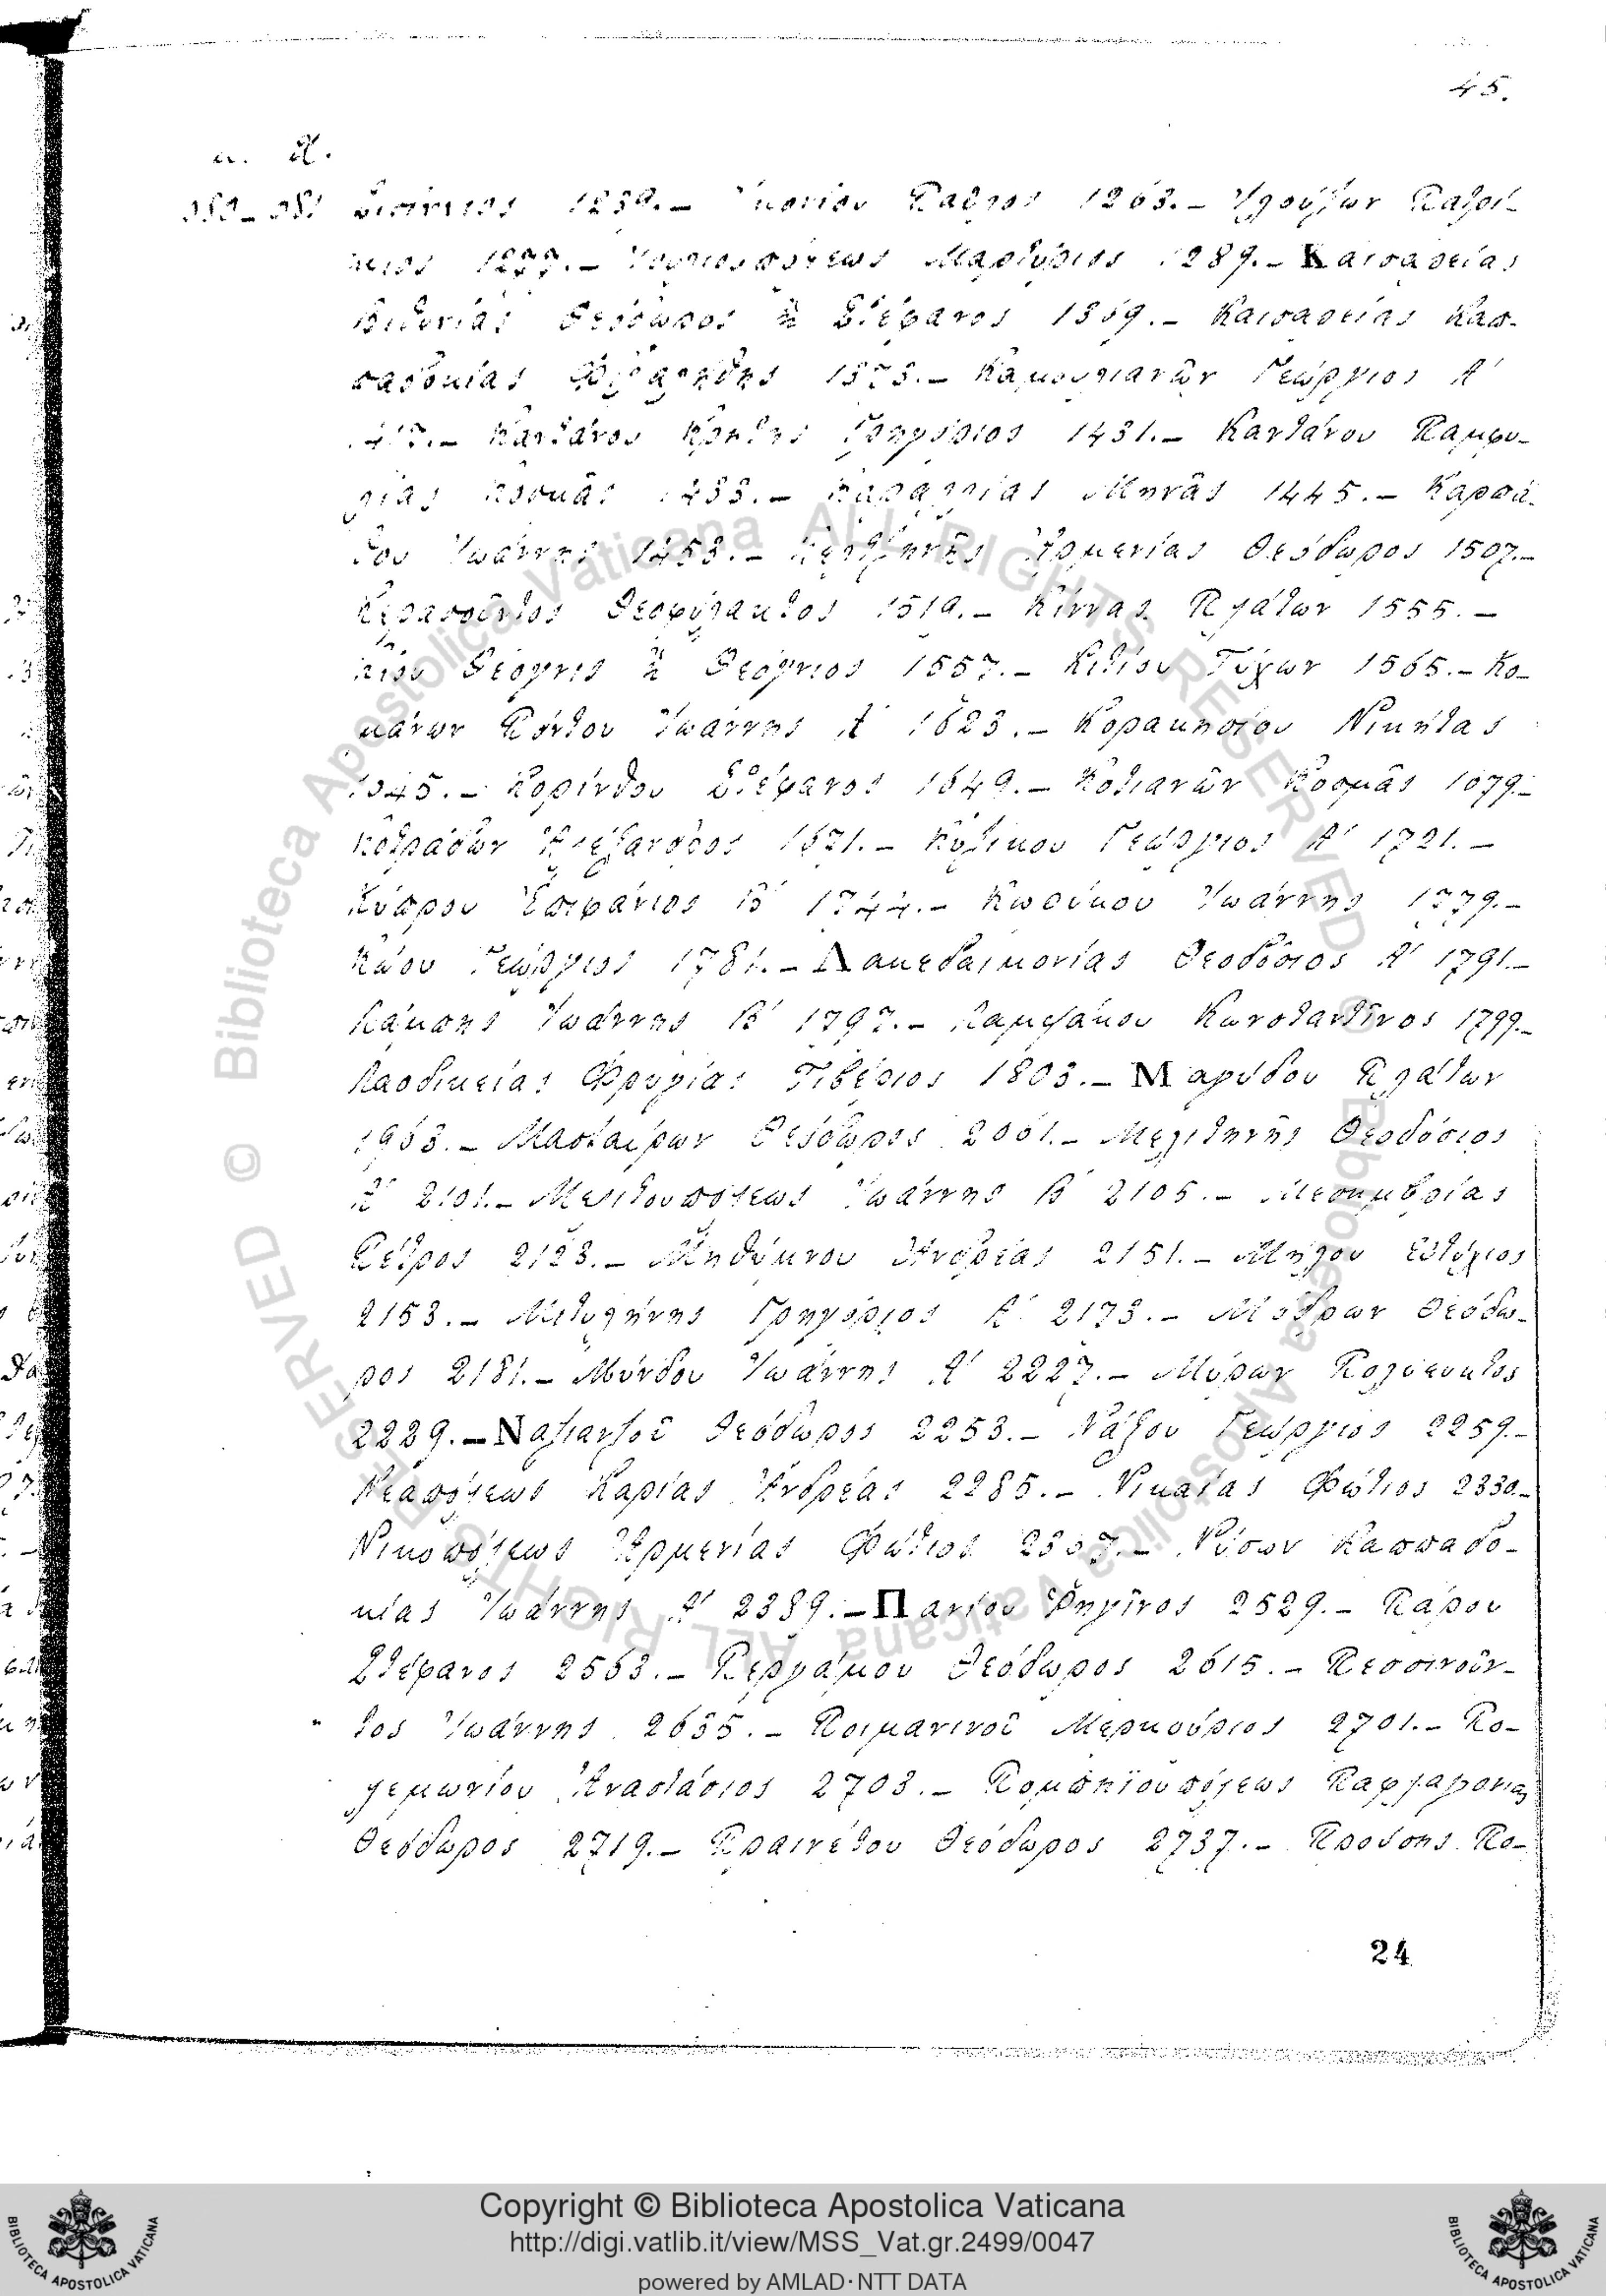 45.
μ. Χ.
680-681 Σισίννιος 1239.- Ἰκονίου Παῦλος 1263.- Ἰλούζων Πατρί-
κιος 1277.- Ἰουλιουπόλεως Μαρτύριος 1289.- Καισαρείας
Βιθυνίας Θεόδωρος ἢ Στέφανος 1369.- Καισαρείας Καπ-
παδοκίας Φιλαλήθης 1373.- Καμουλιανῶν Γεώργιος Α'
Καντάνου Κρήτης Γρηγόριος 1431.- Καντάνου Παμφυ-
λίας Κοσμᾶς 1433.- Καραλλίας Μηνᾶς 1445.- Καρπά-
θου Ἰωάννης 1453.- Κελτζηνῆς Ἀρμενίας Θεόδωρος 1507.-
Κερασοῦντος Θεοφύλακτος 1519.- Κίννας Πλάτων 1555.-
Κίου Θέογνις ἢ Θεόγνιος 1557.- Κιτίου Τύχων 1565.- Κο-
μάνων Πόντου Ἰωάννης Α' 1623.- Κορακησίου Νικήτας
1645.- Κορίνθου Στέφανος 1649.- Κοτιανῶν Κοσμᾶς 1679.-
Κοτράδων Ἀλέξανδρος 1671.- Κυζίκου Γεώργιος Α' 1721.-
Κύπρου Ἐπιφάνιος Β' 1744.- Κωρύκου Ἰωάννης 1779.-
Κώου Γεώργιος 1781.- Λακεδαιμονίας Θεοδόσιος Α' 1791.-
Λάμπης Ἰωάννης Β' 1797.- Λαμψάκου Κωνσταντῖνος 1799.-
Λαοδικείας Φρυγίας Τιβέριος 1803.- Μαγύδου Πλάτων
1963.- Μασταύρων Θεόδωρος 2001.- Μελιτηνῆς Θεοδόσιος
Α' 2101.- Μελιτουπόλεως Ἰωάννης Β' 2105.- Μεσημβρίας
Πέτρος 2123.- Μηθύμνου Ἀνδρέας 2151.- Μήλου Εὐτύχιος
2153.- Μιτυλήνης Γρηγόριος Α' 2173.- Μόδρων Θεόδω-
ρος 2181.- Μύνδου Ἰωάννης Α' 2227.- Μύρων Πολύευκτος
2229.- Ναζιανζοῦ Θεόδωρος 2253.- Νάξου Γεώργιος 2259.-
Νεαπόλεως Καρίας Ἀνδρέας 2285.- Νικαίας Φώτιος 2330.-
Νικοπόλεως Ἀρμενίας Φώτιος 2367.- Νύσων Καππαδο-
κίας Ἰωάννης Α' 2389.- Πανίου Ῥηγῖνος 2529.- Πάρου
Στέφανος 2563.- Περγάμου Θεόδωρος 2615.- Πεσσινοῦν-
τος Ἰωάννης 2655.- Ποιμανινοῦ Μερκούριος 2701.- Πο-
λεμωνίου Ἀναστάσιος 2703.- Πομπηϊουπόλεως Παφλαγονίας
Θεόδωρος 2719.- Πραινέτου Θεόδωρος 2737.- Προύσης Πο-
24
Copyright © Biblioteca Apostolica Vaticana
http://digi.vatlib.it/view/MSS_Vat.gr.2499/0047
powered by AMLAD·NTT DATA